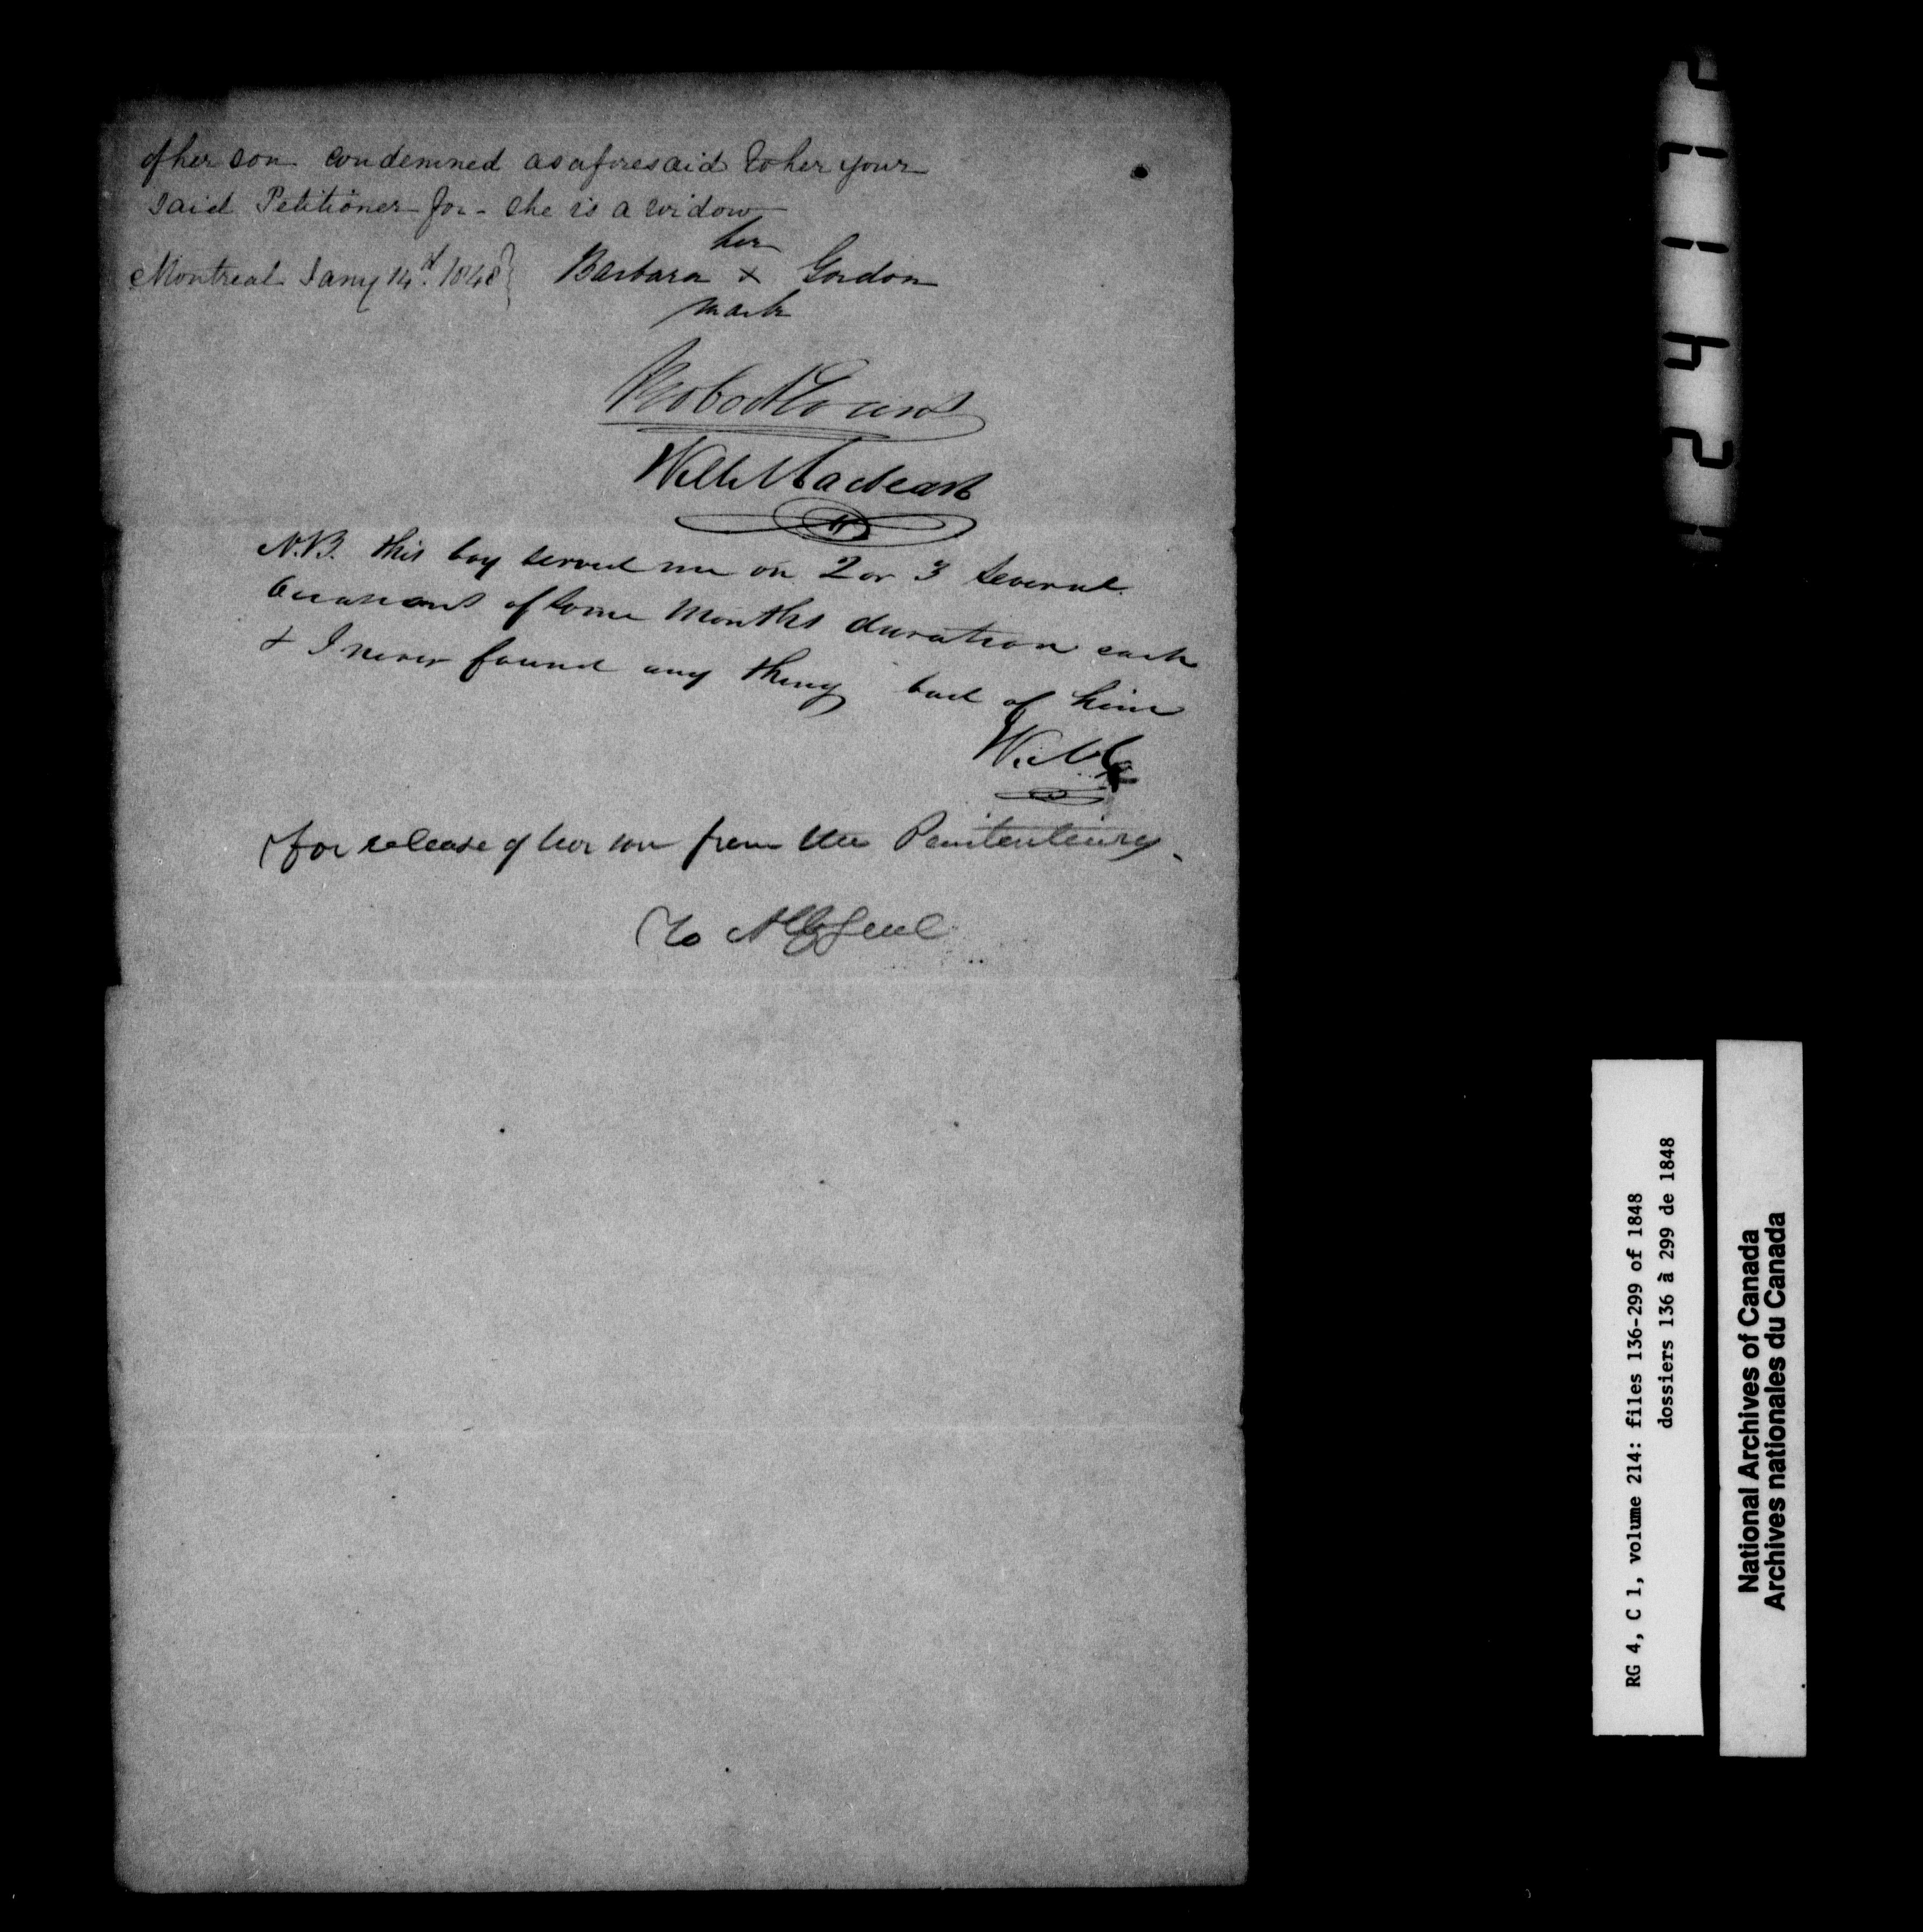 of her son condemned as aforesaid to her your
said Petitioner for - she is a widow
Montreal Jany 14th 1848}
her
Barbara x Gordon
mark
Robert
Willm
N.B. this boy served me on 2 or 3 several
occasions of some Months duration each
& I never found any thing bad of him
W. M
for release of her son from the Penitentiary.
To Genl
2 7 1 4 2
RG 4, C 1, volume 214: files 136-299 of 1848
dossiers 136 à 299 de 1848
National Archives of Canada
Archives nationales du Canada